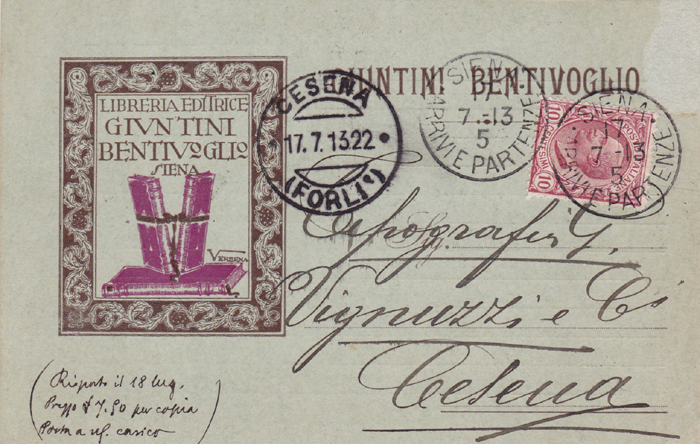 LIBRERIA EDITRICE
GIVNTINI
BENTIVOGLIO
SIENA
VERBENA
GIUNTINI BENTIVOGLIO
CESENA
17.7.13 22
(FORLÌ)
SIENA
17
7-13
5
ARRIVI E PARTENZE
SIENA
17
7-13
5
ARRIVI E PARTENZE
10
Tipografia G.
Vignuzzi e Ci
Cesena
Risposto il 18 lug.
Prezzo £ 7.50 per copia
Porto a
carico